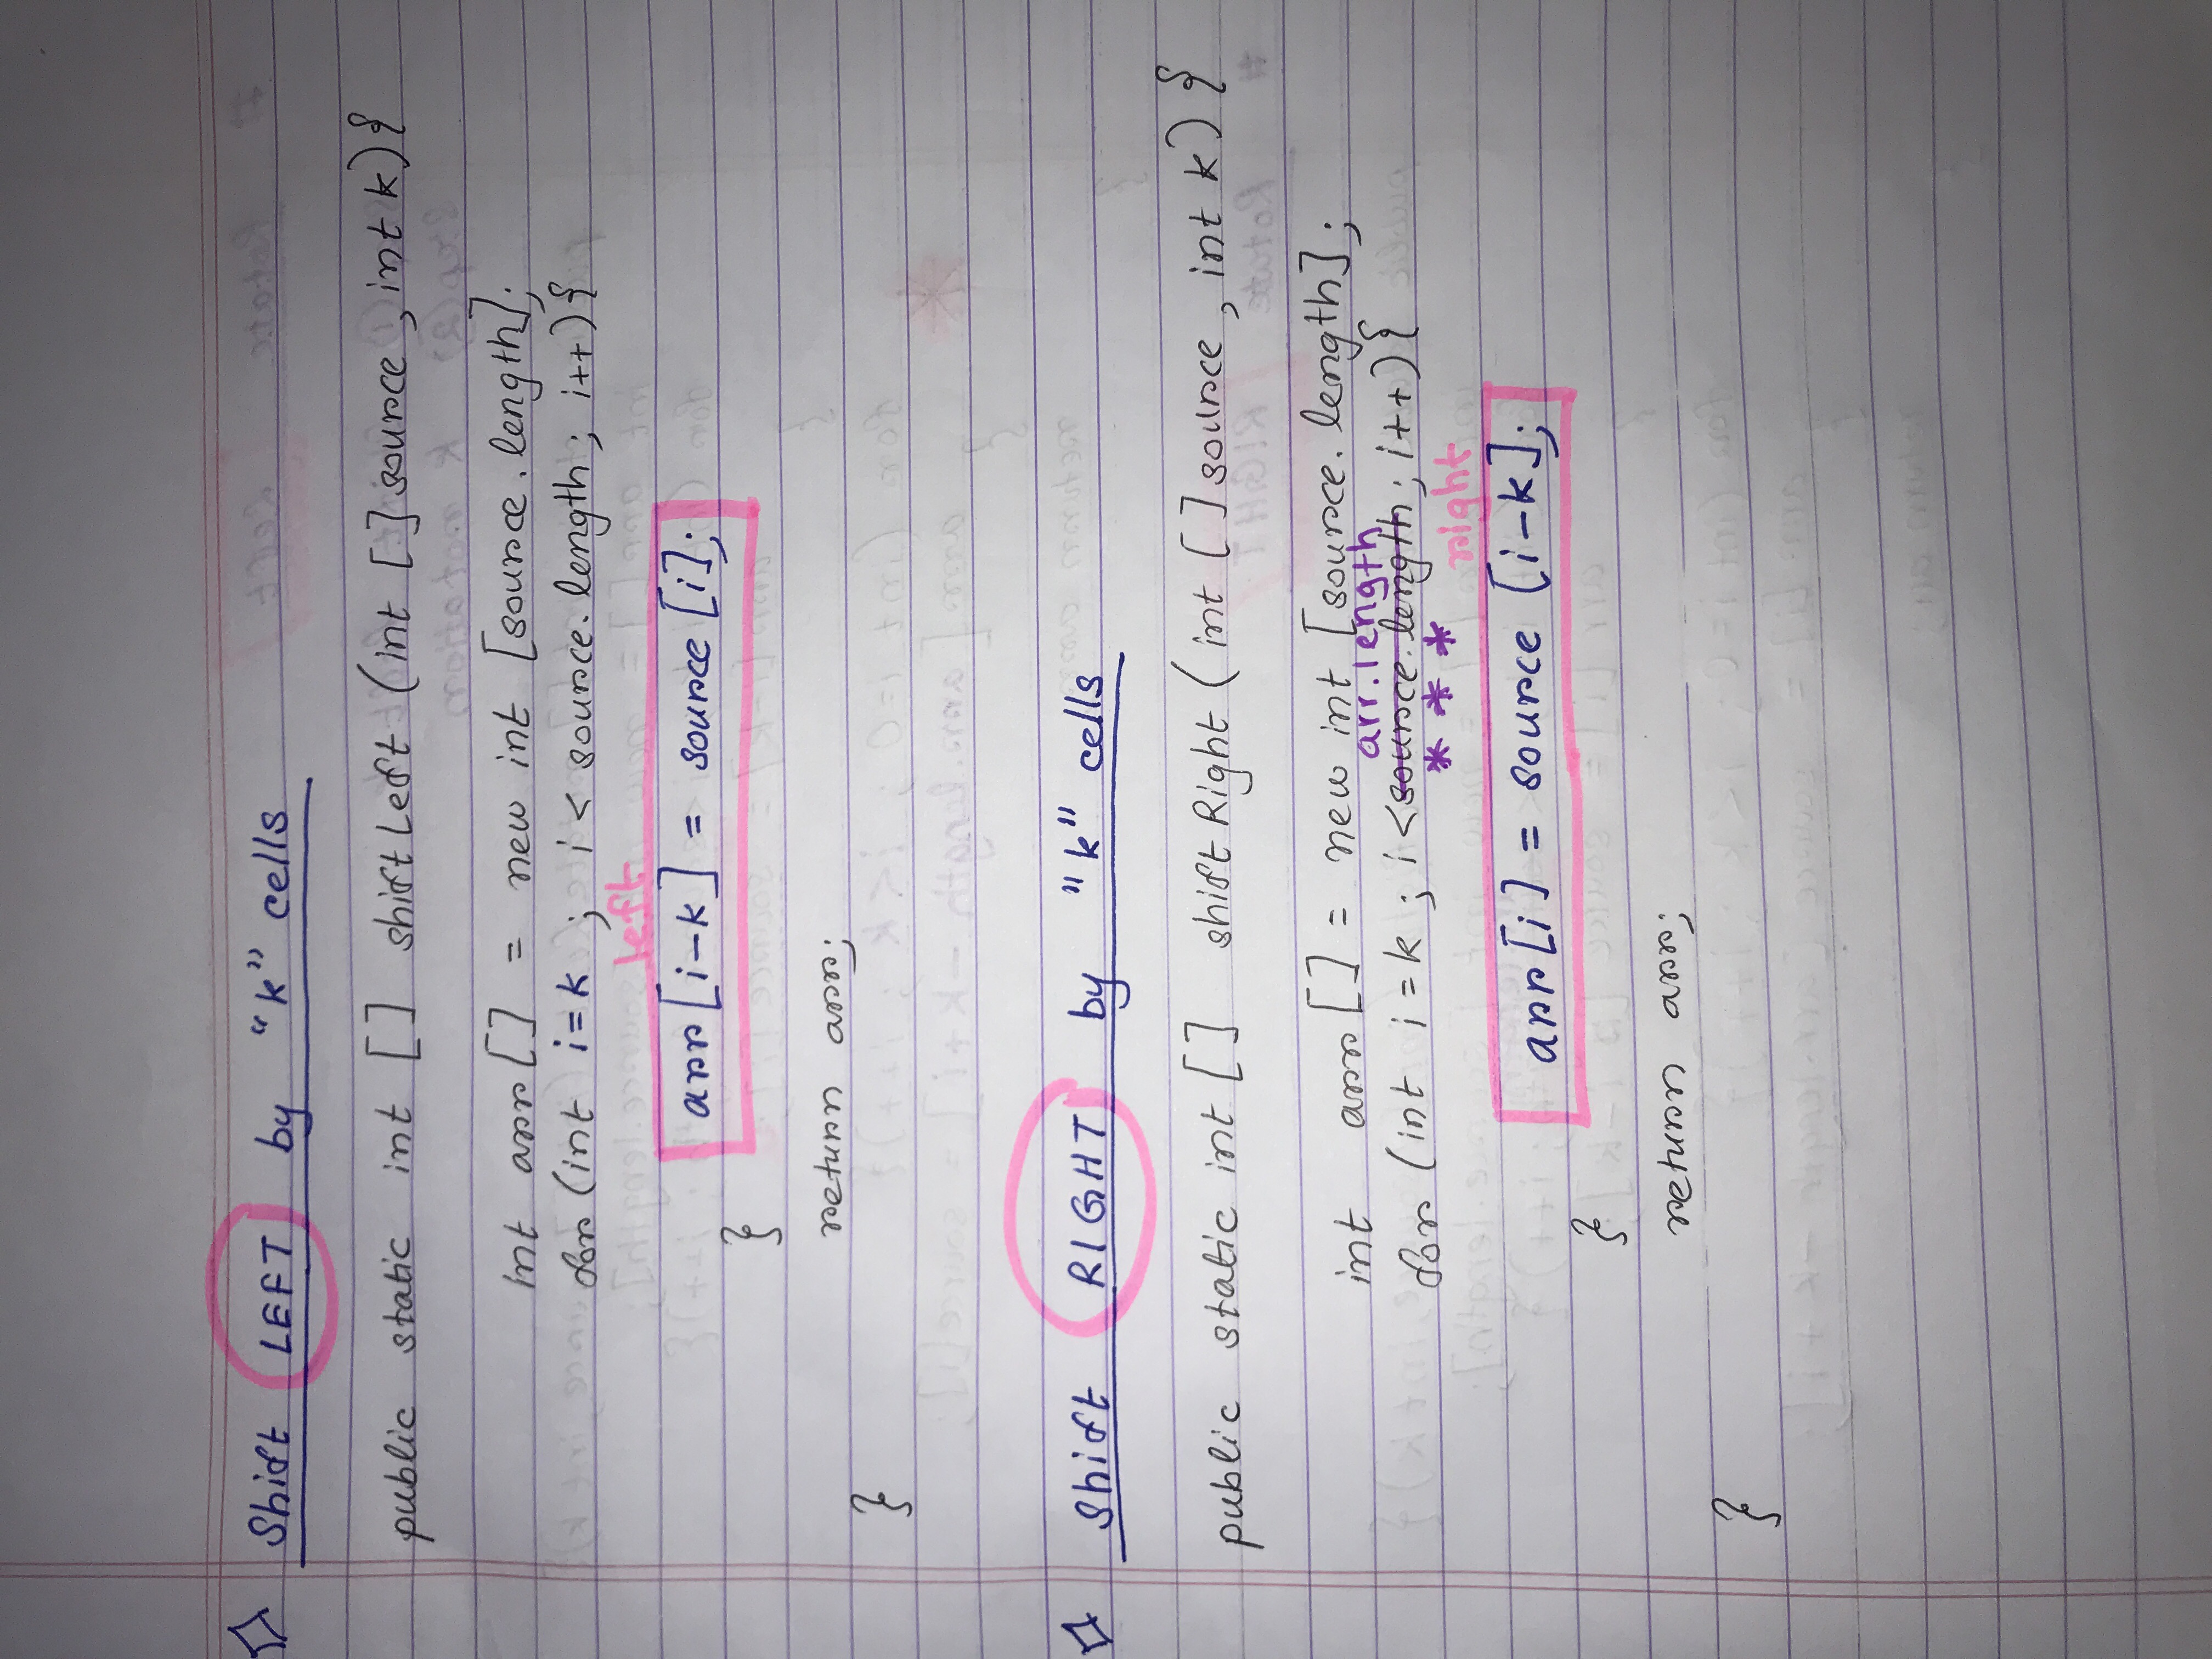 Shift LEFT by "k" cells
public static int [] shiftLeft (int [] source, int k){
int arr[] = new int [source.length];
for (int i=k ; i < source.length; i++){
left
arr[i-k] = source [i];
}
return arr;
}
Shift RIGHT by "k" cells
public static int [] shiftRight (int [] source, int k) {
int arr[] = new int [source.length];
arr.length
for (int i=k ; i <source.length; i++){
* * *
right
arr[i] = source [i-k];
}
return arr;
}